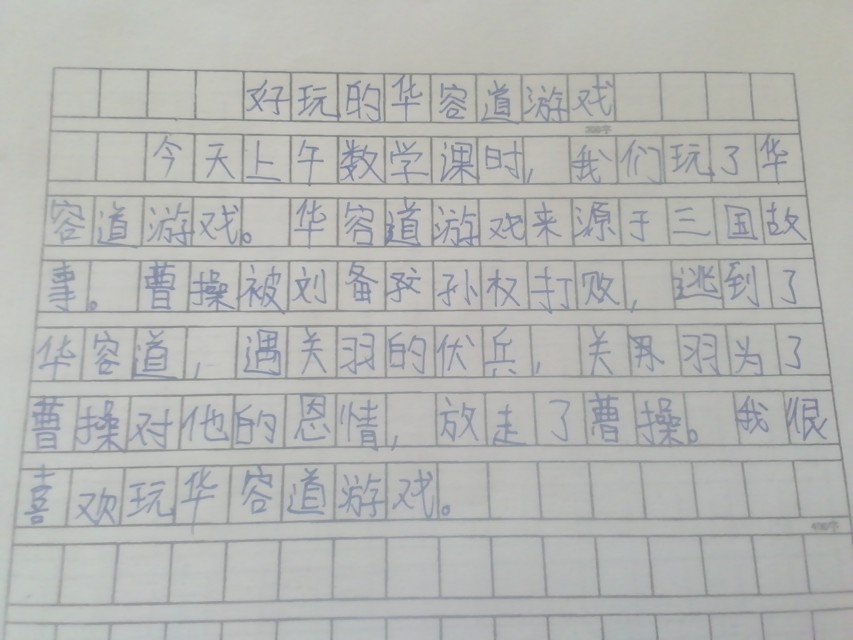 好玩的华容道游戏
今天上午数学课时，我们玩了华
容道游戏。华容道游戏来源于三国故
事。曹操被刘备孙权打败，逃到了
华容道，遇关羽的伏兵，关羽为了
曹操对他的恩情，放走了曹操。我很
喜欢玩华容道游戏。